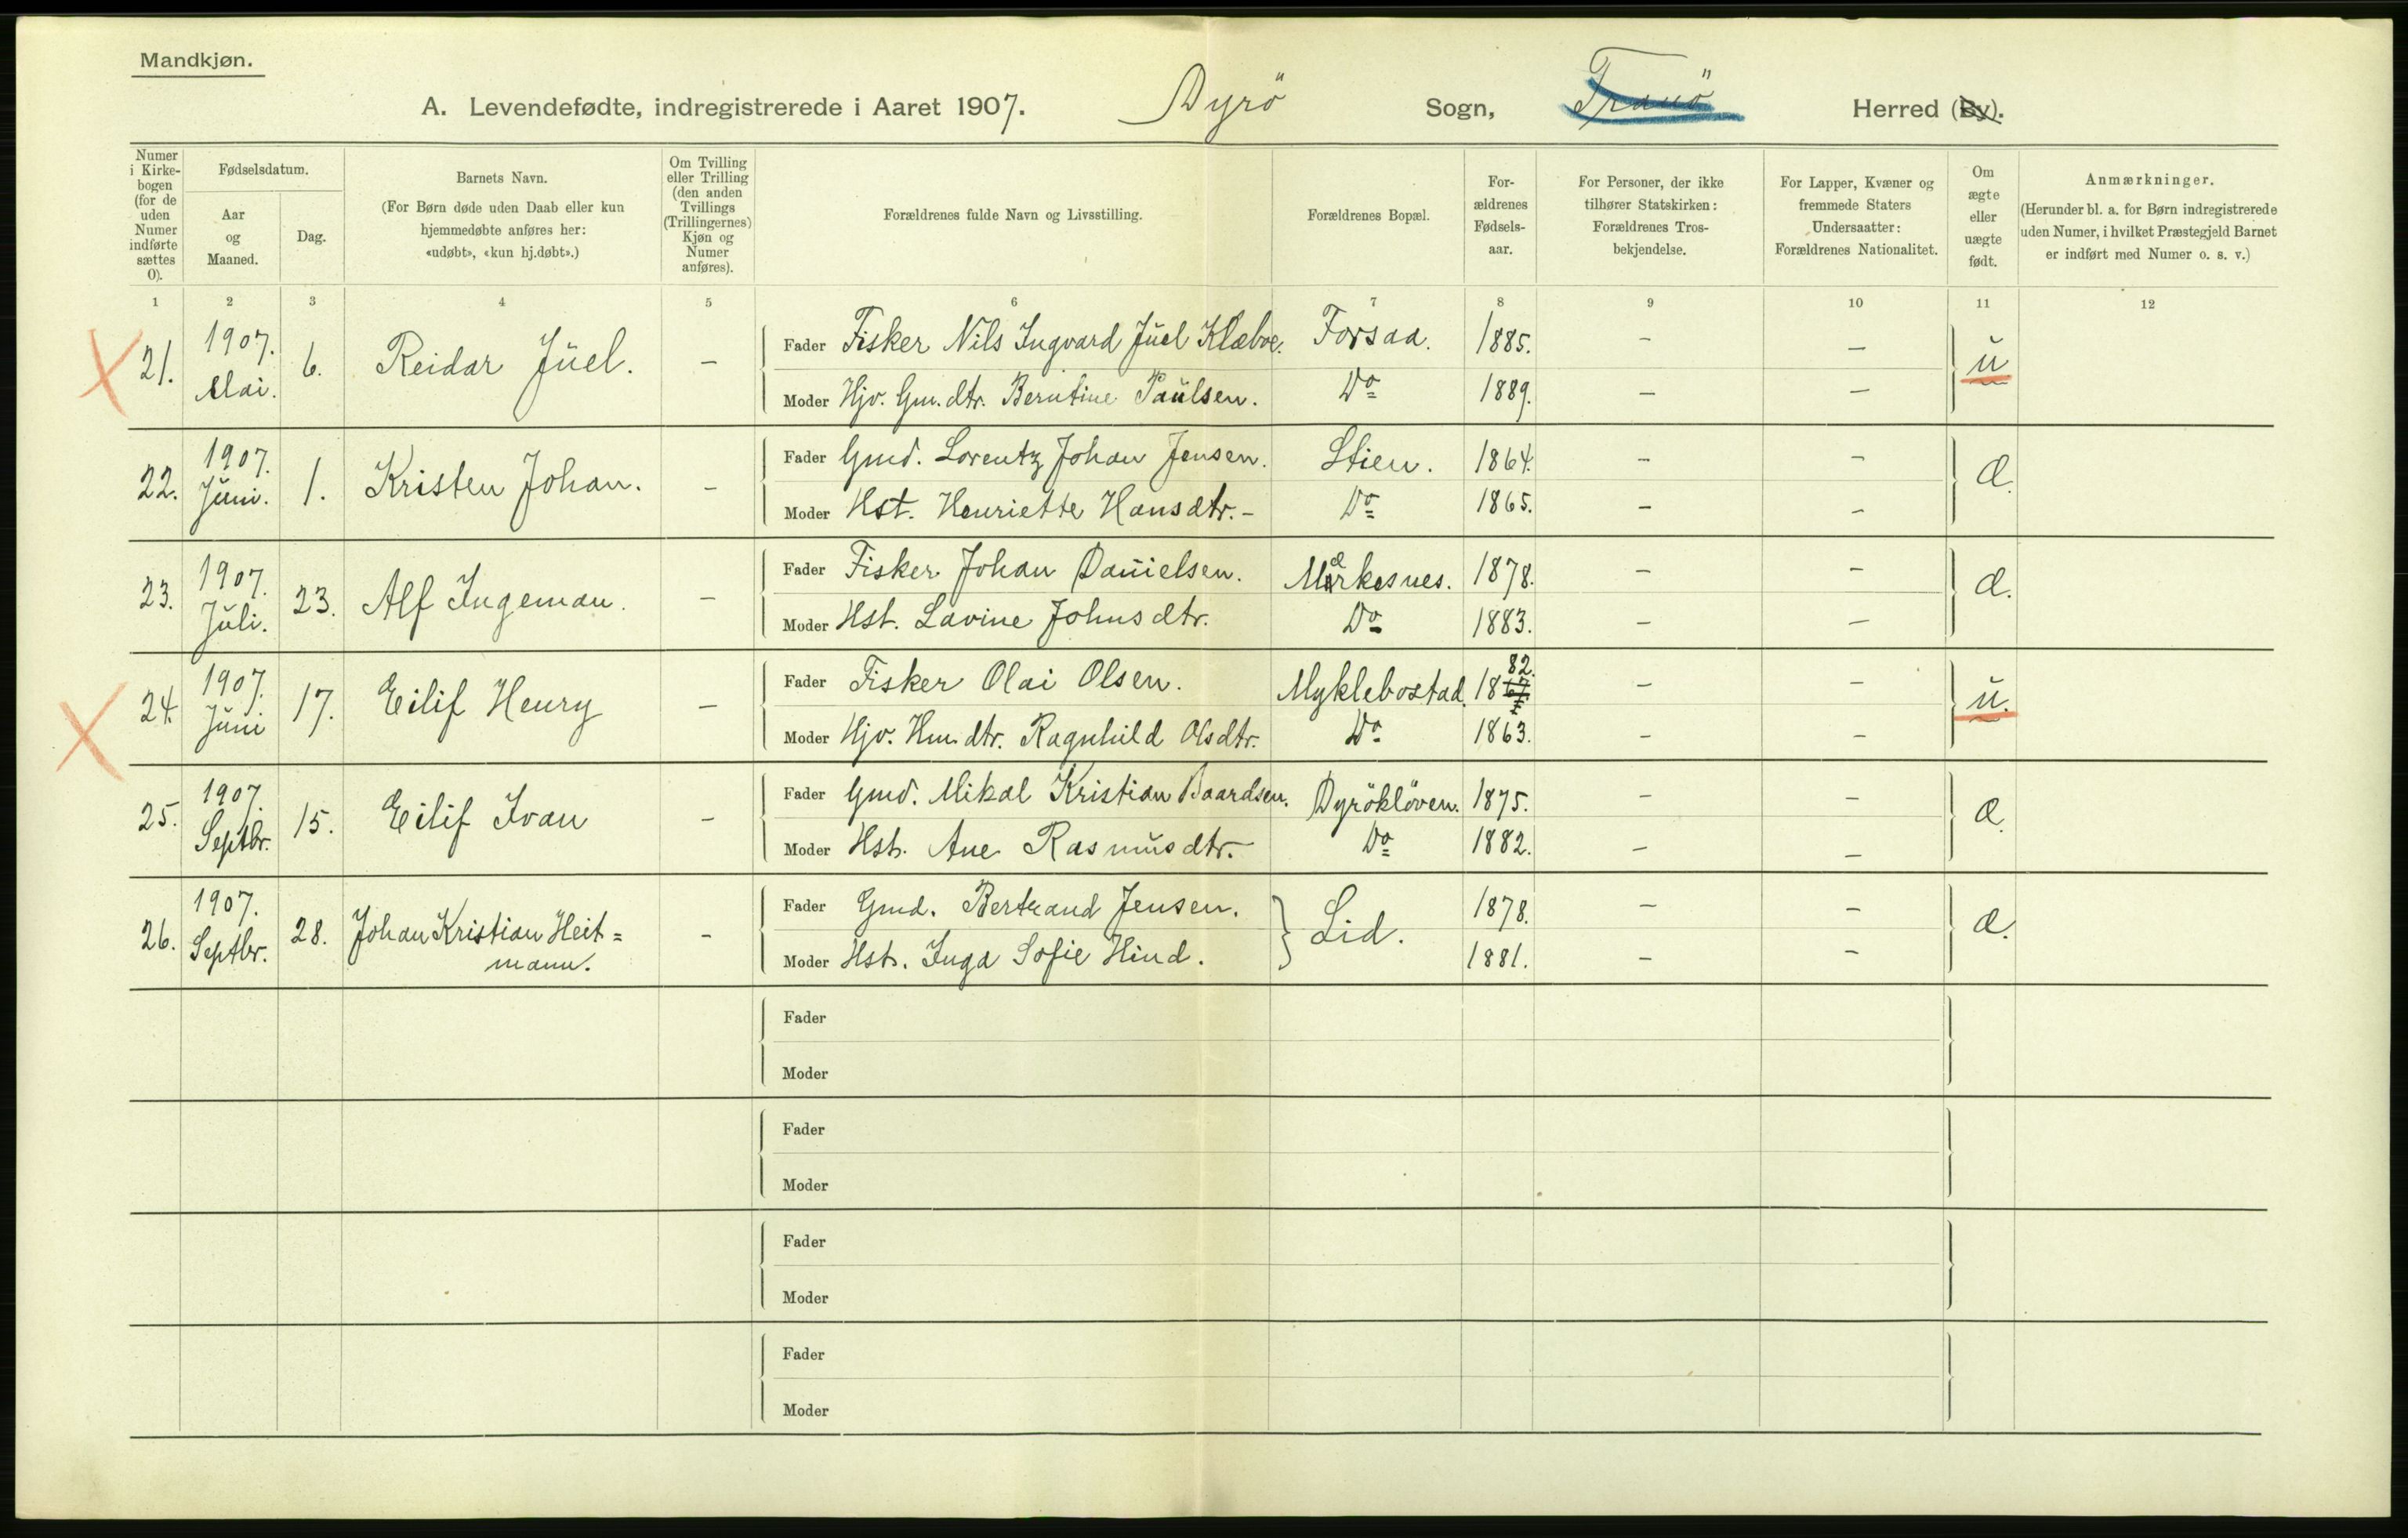 Mandkjøn.
A. Levendefødte, indregistrerede i Aaret 1907. Dyrö Sogn, Tranö Herred (By).
Numer i Kirkebogen (for de uden Numer indførte sættes 0).
Fødselsdatum.
Aar og Maaned.
Dag.
Barnets Navn.
(For Børn døde uden Daab eller kun hjemmedøbte anføres her: «udøbt», «kun hj.døbt».)
Om Tvilling eller Trilling (den anden Tvillings (Trillingernes) Kjøn og Numer anføres).
Forældrenes fulde Navn og Livsstilling.
Forældrenes Bopæl.
For-
ældrenes
Fødsels-
aar.
For Personer, der ikke
tilhører Statskirken:
Forældrenes Tros-
bekjendelse.
For Lapper, Kvæner og
fremmede Staters
Undersaatter:
Forældrenes Nationalitet.
Om
ægte
eller
uægte
født.
Anmærkninger.
(Herunder bl. a. for Børn indregistrerede
uden Numer, i hvilket Præstegjeld Barnet
er indført med Numer o. s. v.)
1 2 3 4 5 6 7 8 9 10 11 12
21. 1907. Mai. 6. Reidar Juel. – Fader Fisker Nils Ingvard Juel Klæboe. Forsaa. 1885. – – u
Moder Hjv. Gm. dtr. Berntine Paulsen. Do 1889. – –
22. 1907. Juni. 1. Kristen Johan. – Fader Gmd. Lorentz Johan Jensen. Stien. 1864. – – æ.
Moder Hst. Henriette Hansdtr. – Do 1865. – –
23. 1907. Juli. 23. Alf Ingeman. – Fader Fisker Johan Danielsen. Mærkesnes. 1878. – – æ.
Moder Hst. Lavine Johnsdtr. Do 1883. – –
24. 1907. Juni 17. Eilif Henry – Fader Fisker Olai Olsen. Myklebostad. 1882. – – u.
Moder Hjv. Hm. dtr. Ragnhild Olsdtr. Do 1863. – –
25. 1907. Septbr. 15. Eilif Ivan – Fader Gmd. Mikal Kristian Baardsen. Dyröklöven. 1875. – – æ.
Moder Hst. Ane Rasmusdtr. Do 1882. – –
26. 1907. Septbr. 28. Johan Kristian Heit=
mann. – Fader Gmd. Bertrand Jensen. Lid. 1878. – – æ.
Moder Hst. Inga Sofie Hind. 1881. – –
Fader
Moder
Fader
Moder
Fader
Moder
Fader
Moder